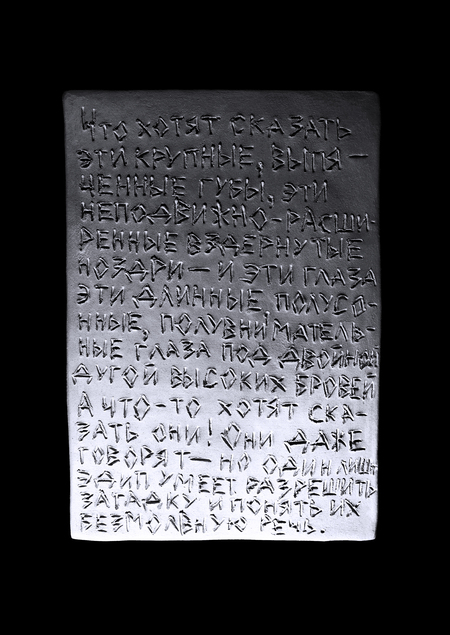 Что хотят сказать
эти крупные, выпя-
ченные губы, эти
неподвижно-расши-
ренные вздернутые
ноздри — и эти глаза
эти длинные, полусо-
нные, полувниматель-
ные глаза под двойной
дугой высоких бровей
А что-то хотят ска-
зать они! Они даже
говорят — но один лишь
Эдип умеет разрешить
загадку и понять их
безмолвную речь.